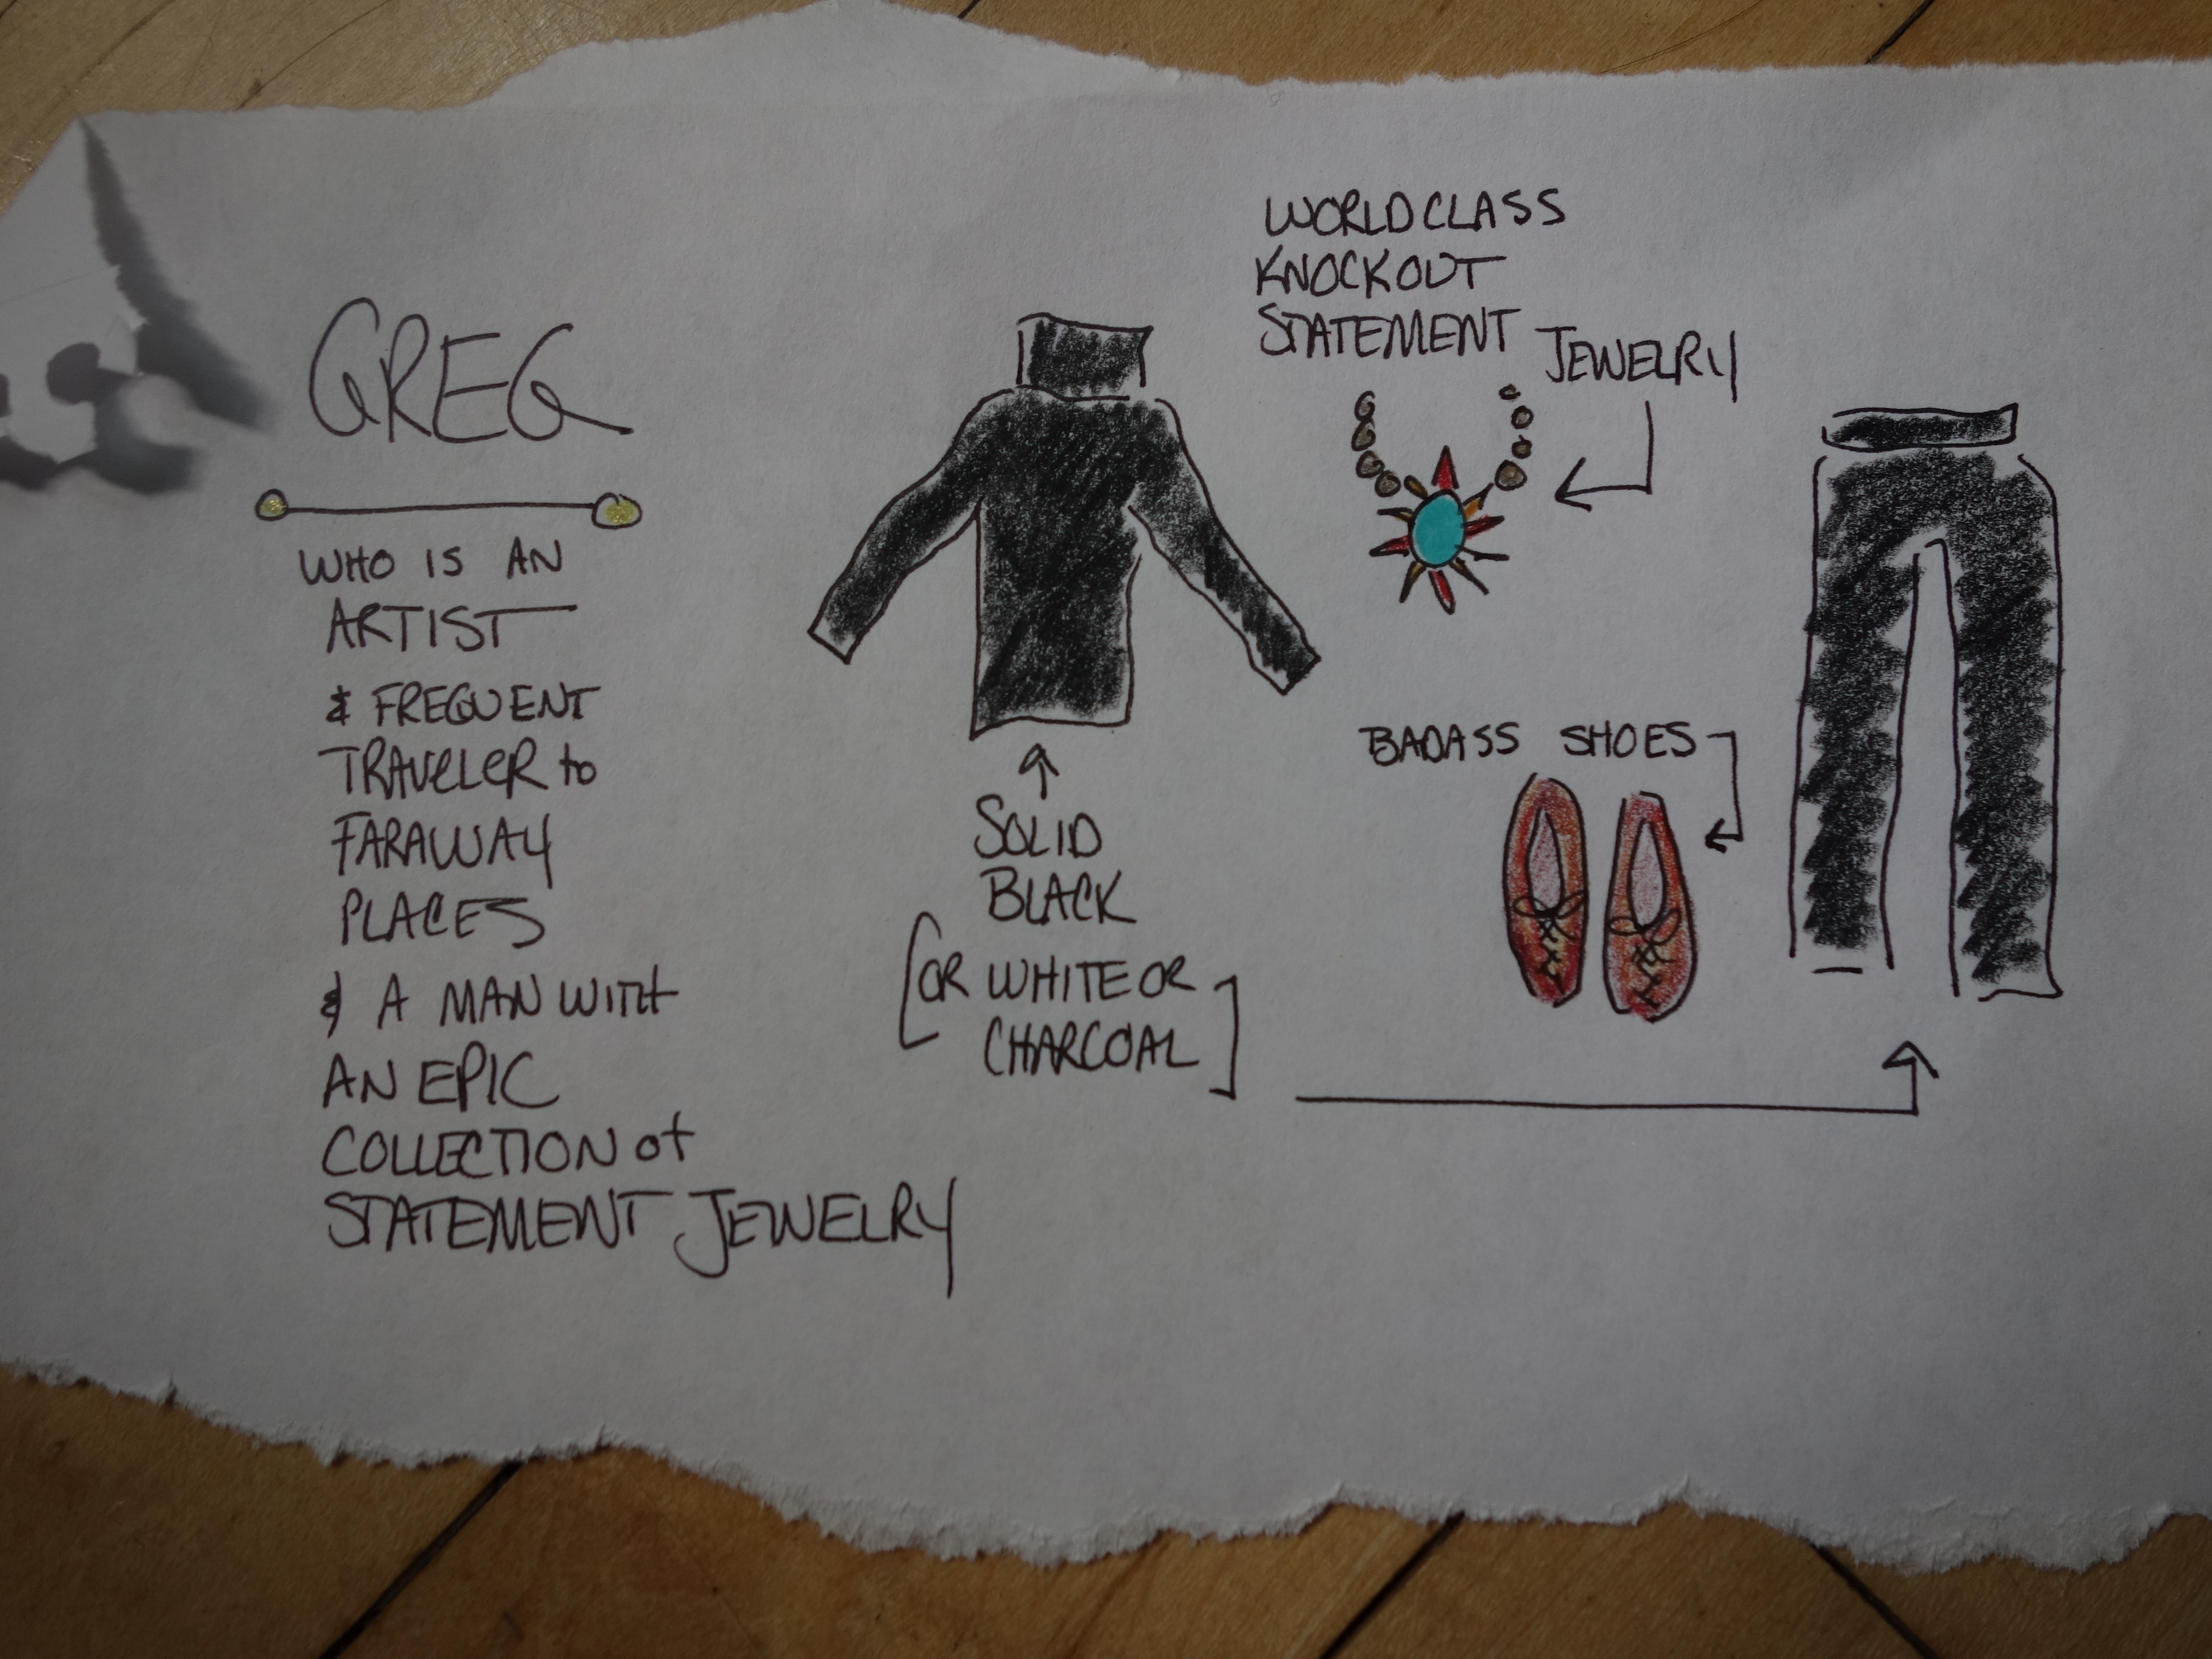 GREG
WHO IS AN
ARTIST
& FREQUENT
TRAVELER to
FARAWAY
PLACES
& A MAN WITH
AN EPIC
COLLECTION of
STATEMENT JEWELRY
SOLID
BLACK
[OR WHITE OR
CHARCOAL]
WORLDCLASS
KNOCKOUT
STATEMENT JEWELRY
BADASS SHOES